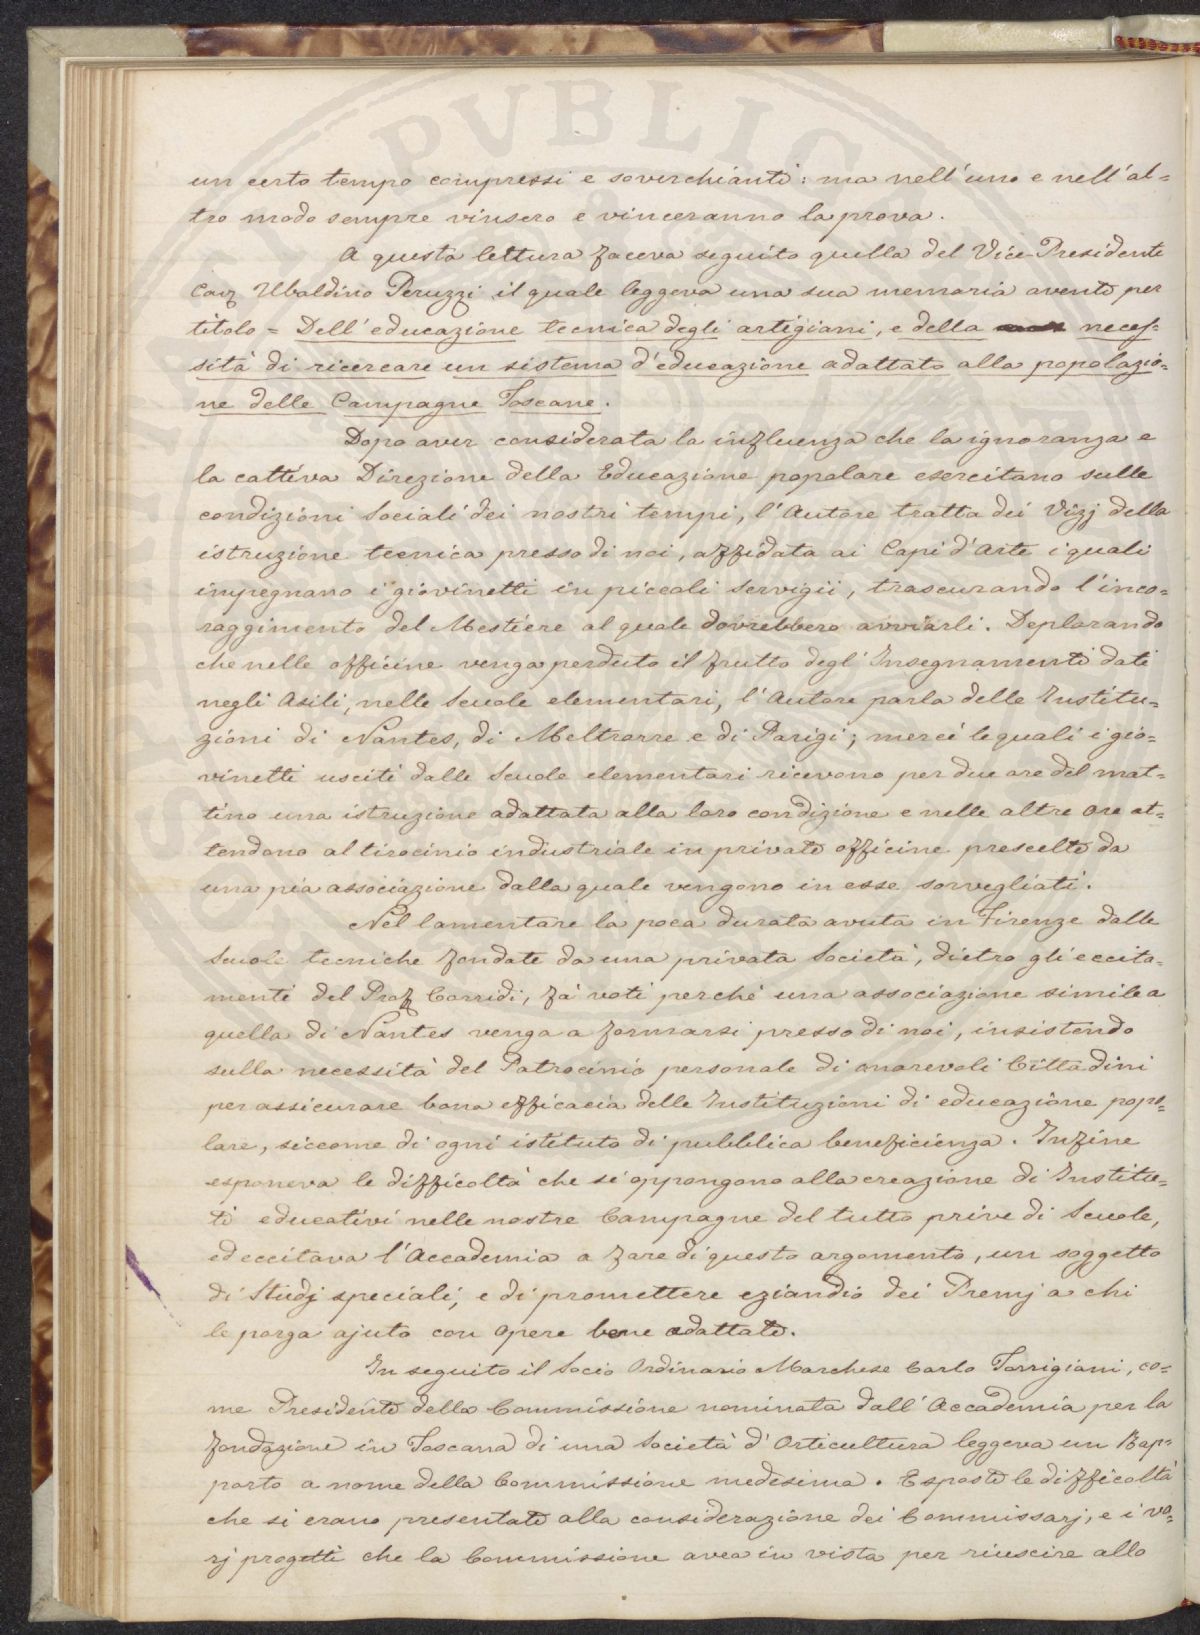 un certo tempo compressi e soverchianti: ma nell'uno e nell'al=
tro modo sempre vinsero e vinceranno la prova.
A questa lettura faceva seguito quella del Vice-Presidente
Cav Ubaldino Peruzzi il quale leggeva una sua memoria avente per
titolo = Dell'educazione tecnica degli artigiani, e della neces=
sità di ricercare un sistema d'educazione adattato alla popolazio=
ne delle Campagne Toscane.
Dopo aver considerata la influenza che la ignoranza e
la cattiva Direzione della Educazione popolare esercitano sulle
condizioni Sociali dei nostri tempi, l'Autore tratta dei Vizj della
istruzione tecnica presso di noi, affidata ai Capi d'Arte i quali
impegnano i giovinetti in piccoli servigii, trascurando l'inco=
raggimento del Mestiere al quale dovrebbero avviarli. Deplorando
che nelle officine venga perduto il frutto degl'Insegnamenti dati
negli Asili, nelle Scuole elementari, l'Autore parla delle Institu=
zioni di Nantes, di Meltrarre e di Parigi; mercè le quali i gio=
vinetti usciti dalle Scuole elementari ricevono per due ore del mat=
tino una istruzione adattata alla loro condizione e nelle altre ore at=
tendono al tirocinio industriale in private officine prescelte da
una pia associazione dalla quale vengono in esse sorvegliati.
Nel lamentare la poca durata avuta in Firenze dalle
Scuole tecniche fondate da una privata Società, dietro gli eccita=
menti del Prof Corridi, fà voti perchè una associazione simile a
quella di Nantes venga a formarsi presso di noi, insistendo
sulla necessità del Patrocinio personale di onorevoli Cittadini
per assicurare bona efficacia delle Instituzioni di educazione popo=
lare, siccome di ogni istituto di pubblica beneficienza. Infine
esponeva le difficoltà che si oppongono alla creazione di Institu=
ti educativi nelle nostre Campagne del tutto prive di Scuole,
ed eccitava l'Accademia a fare di questo argomento, un soggetto
di Studj speciali, e di promettere eziandio dei Premj a chi
le porga ajuto con opere bene adattate.
In seguito il Socio Ordinario Marchese Carlo Torrigiani, co=
me Presidente della Commissione nominata dall'Accademia per la
fondazione in Toscana di una Società d'Orticultura leggeva un Rap=
porto a nome della Commissione medesima. Esposte le difficoltà
che si erano presentate alla considerazione dei Commissarj, e i va=
rj progetti che la Commissione avea in vista per riuscire allo
PVBLIC